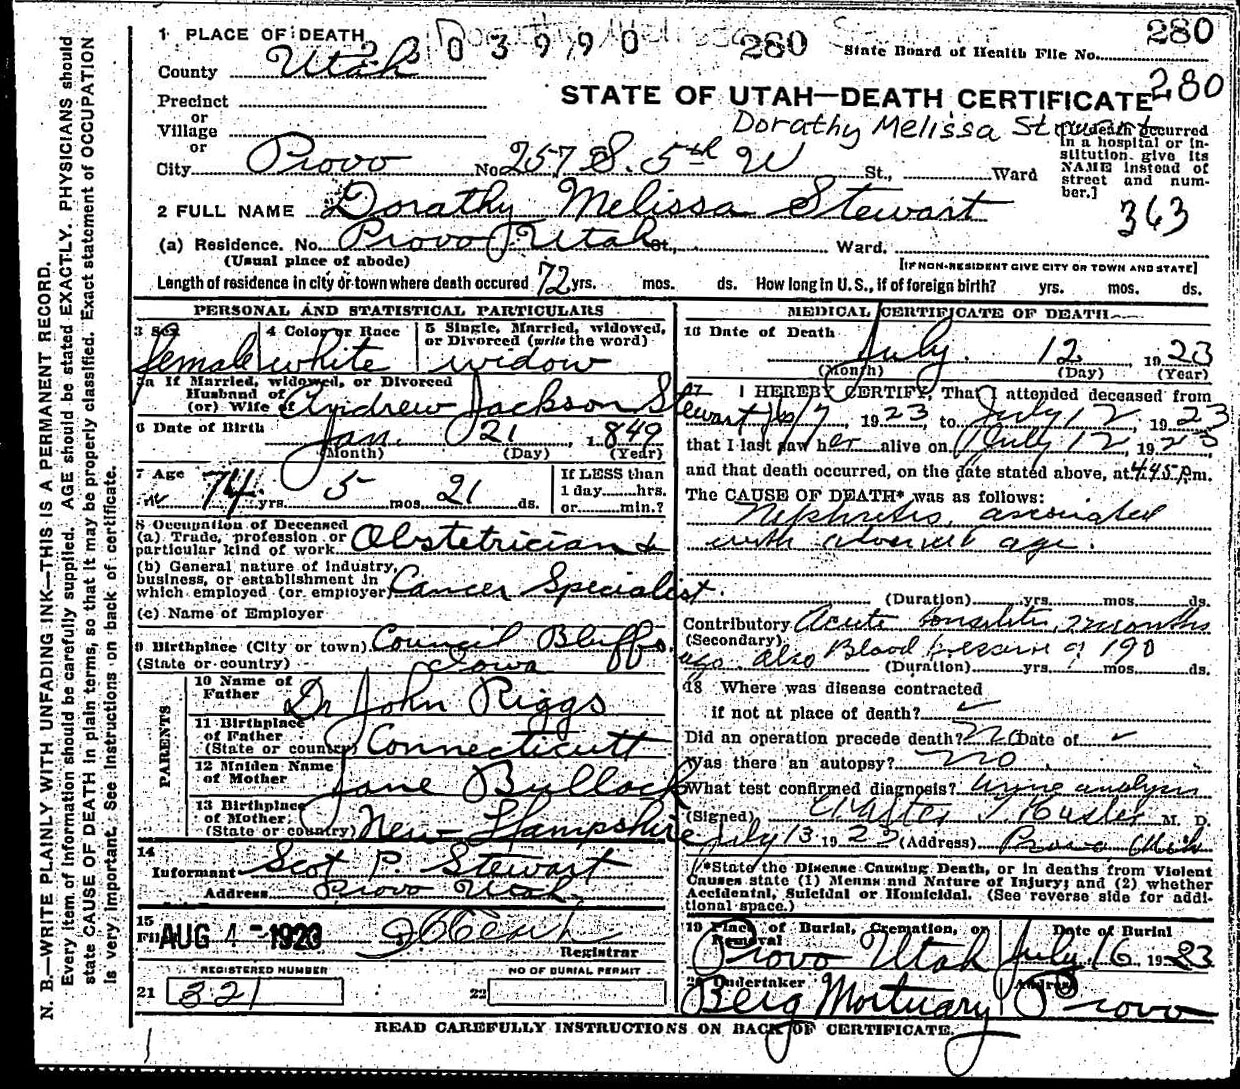 N. B.—WRITE PLAINLY WITH UNFADING INK—THIS IS A PERMANENT RECORD.
Every item of information should be carefully supplied. AGE should be stated EXACTLY. PHYSICIANS should
state CAUSE OF DEATH in plain terms, so that it may be properly classified. Exact statement of OCCUPATION
is very important. See instructions on back of certificate.
1 PLACE OF DEATH
0 3 9 9 0 280
State Board of Health File No. 280
280
County Utah
STATE OF UTAH—DEATH CERTIFICATE
Precinct
or
Village
or
Dorathy Melissa Stewart
City Provo No 257 S. 5th W St., Ward
[If death occurred
in a hospital or in-
stitution, give its
NAME instead of
street and num-
ber.]
363
2 FULL NAME Dorathy Melissa Stewart
(a) Residence. No. Provo Utah St., Ward.
(Usual place of abode)
[IF NON-RESIDENT GIVE CITY OR TOWN AND STATE]
Length of residence in city or town where death occured 72 yrs. mos. ds. How long in U.S., if of foreign birth? yrs. mos. ds.
PERSONAL AND STATISTICAL PARTICULARS
3 Sex female
4 Color or Race white
5 Single, Married, widowed,
or Divorced (write the word)
widow
5a If Married, widowed, or Divorced
Husband of
(or) Wife of Andrew Jackson Stewart
6 Date of Birth Jan. 21, 1849
(Month) (Day) (Year)
7 Age 74 yrs. 5 mos. 21 ds.
If LESS than
1 day hrs.
or min.?
8 Occupation of Deceased
(a) Trade, profession or
particular kind of work Obstetrician &
(b) General nature of industry,
business, or establishment in
which employed (or employer) Cancer Specialist.
(c) Name of Employer
9 Birthplace (City or town) Council Bluffs,
(State or country) Iowa
PARENTS
10 Name of
Father Dr John Riggs
11 Birthplace
of Father
(State or country) Connecticutt
12 Maiden Name
of Mother Jane Bullock
13 Birthplace
of Mother
(State or country) New Hampshire
14
Informant Scot P. Stewart
Address Provo Utah
15
Filed AUG 4 - 1923
Registrar
REGISTERED NUMBER
21 321
NO OF BURIAL PERMIT
22
MEDICAL CERTIFICATE OF DEATH
16 Date of Death
July 12 1923
(Month) (Day) (Year)
17
I HEREBY CERTIFY, That I attended deceased from
1923 to July 12, 1923
that I last saw her alive on July 12, 1923
and that death occurred, on the date stated above, at 4.45 p.m.
The CAUSE OF DEATH* was as follows:
Nephritis, associated
with advanced age.
(Duration) yrs. mos. ds.
Contributory Acute tonsilitis, 2 months
(Secondary)
ago. also Blood pressure of 190
(Duration) yrs. mos. ds.
18 Where was disease contracted
if not at place of death?
Did an operation precede death? no Date of
Was there an autopsy? no
What test confirmed diagnosis? urine analysis
(Signed) Walter T. Hasler M. D.
July 13 1923 (Address) Provo Utah
*State the Disease Causing Death, or in deaths from Violent
Causes state (1) Menns and Nature of Injury; and (2) whether
Accidental, Suicidal or Homicidal. (See reverse side for addi-
tional space.)
19 Place of Burial, Cremation, or
Removal
Provo Utah
Date of Burial
July 16, 1923
20 Undertaker
Berg Mortuary
Address
Provo
READ CAREFULLY INSTRUCTIONS ON BACK OF CERTIFICATE.